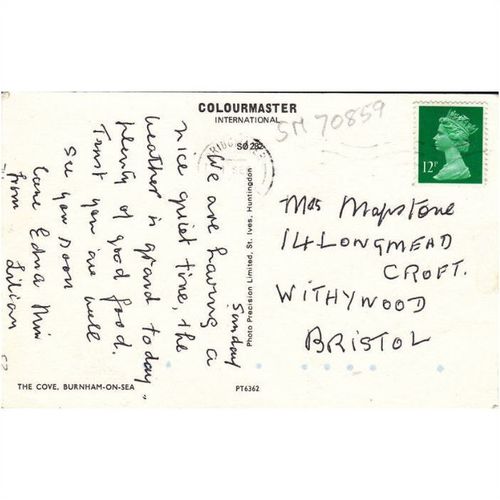 COLOURMASTER
INTERNATIONAL
SM 70859
12P
Sunday
We are having a
nice quiet time, the
weather is grand today,
plenty of good food.
Trust you are well
see you soon
love Edna Mrs
from Lilian
Mrs Mapstone
14 LONGMEAD
CROFT.
WITHYWOOD
BRISTOL
Photo Precision Limited, St. Ives, Huntingdon
THE COVE, BURNHAM-ON-SEA
PT6362